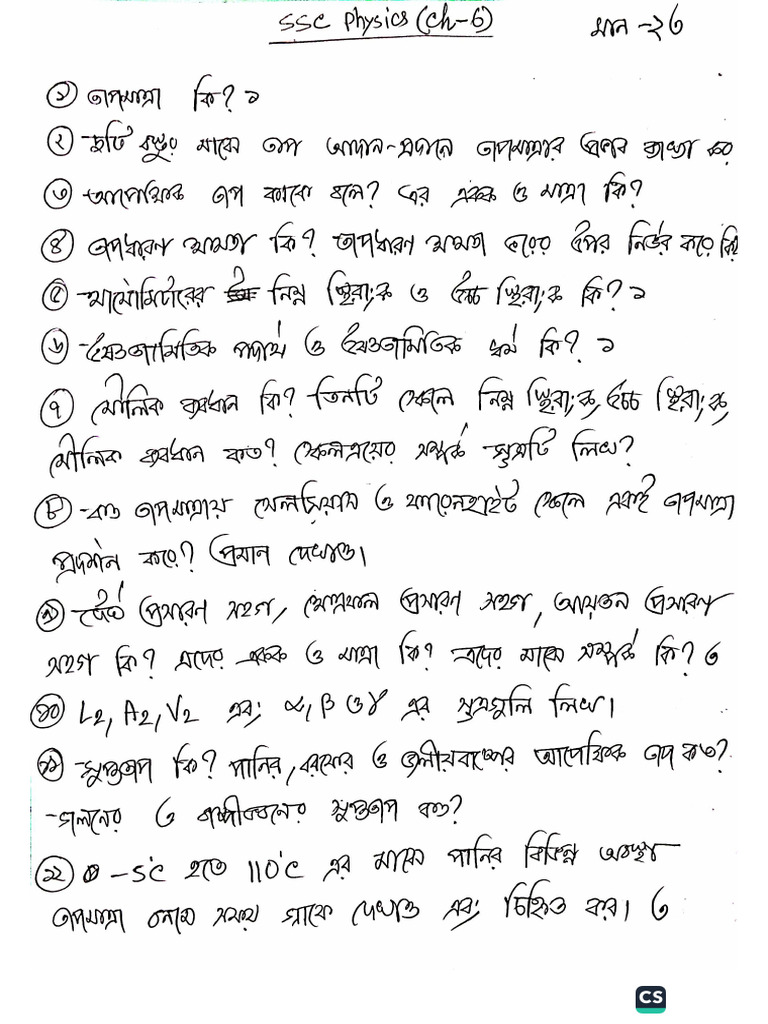 SSC Physics (Ch-6) মান -২৩
১ তাপমাত্রা কি? ১
২ দুটি বস্তুর মাঝে তাপ আদান-প্রদানে তাপমাত্রার প্রভাব ব্যাখ্যা কর
৩ আপেক্ষিক তাপ কাকে বলে? এর একক ও মাত্রা কি?
৪ তাপধারণ ক্ষমতা কি? তাপধারণ ক্ষমতা কিসের উপর নির্ভর করে
৫ থার্মোমিটারের নিম্ন স্থিরাংক ও উচ্চ স্থিরাংক কি? ১
৬ উষ্ণতামিতিক পদার্থ ও উষ্ণতামিতিক ধর্ম কি? ১
৭ মৌলিক ব্যবধান কি? তিনটি স্কেলে নিম্ন স্থিরাংক, উচ্চ স্থিরাংক,
মৌলিক ব্যবধান কত? স্কেলত্রয়ের সম্পর্ক সূত্রটি লিখ?
৮ কত তাপমাত্রায় সেলসিয়াস ও ফারেনহাইট স্কেলে একই তাপমাত্রা
প্রদর্শন করে? প্রমান দেখাও।
৯ দৈর্ঘ্য প্রসারণ সহগ, ক্ষেত্রফল প্রসারণ সহগ, আয়তন প্রসারণ
সহগ কি? এদের একক ও মাত্রা কি? এদের মাঝে সম্পর্ক কি? ৩
১০ L2, A2, V2 এবং α, β ও γ এর সূত্রগুলি লিখ।
১১ সুপ্ততাপ কি? পানির, বরফের ও জলীয়বাষ্পের আপেক্ষিক তাপ কত?
গলনের ও বাষ্পীভবনের সুপ্ততাপ কত?
১২ -5°C হতে 110°C এর মাঝে পানির বিভিন্ন অবস্থা
তাপমাত্রা বনাম সময় গ্রাফে দেখাও এবং চিহ্নিত কর। ৩
CS